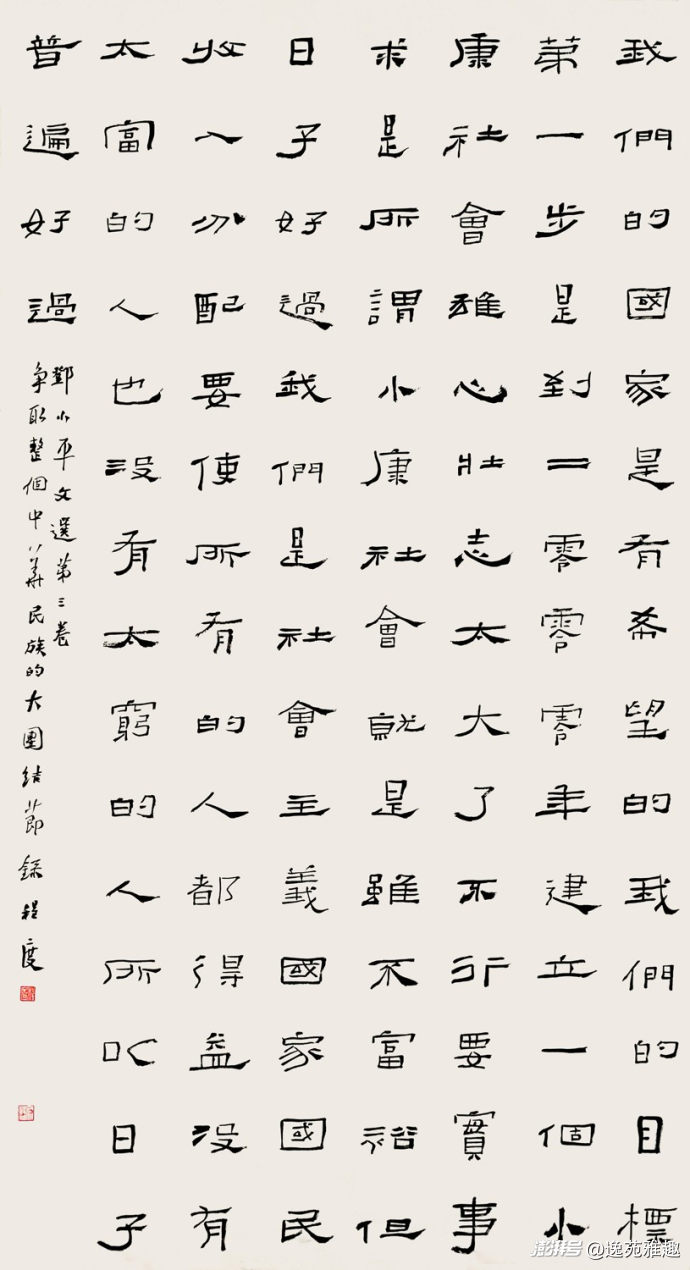 我們的國家是有希望的我們的目標
第一步是到二零零零年建立一個小
康社會雄心壯志太大了不行要實事
求是所謂小康社會就是雖不富裕但
日子好過我們是社會主義國家國民
收入分配要使所有的人都得益沒有
太富的人也沒有太窮的人所以日子
普遍好過
鄧小平文選第三卷
爭取整個中華民族的大團結節錄程度
澎湃号 @逸苑雅趣